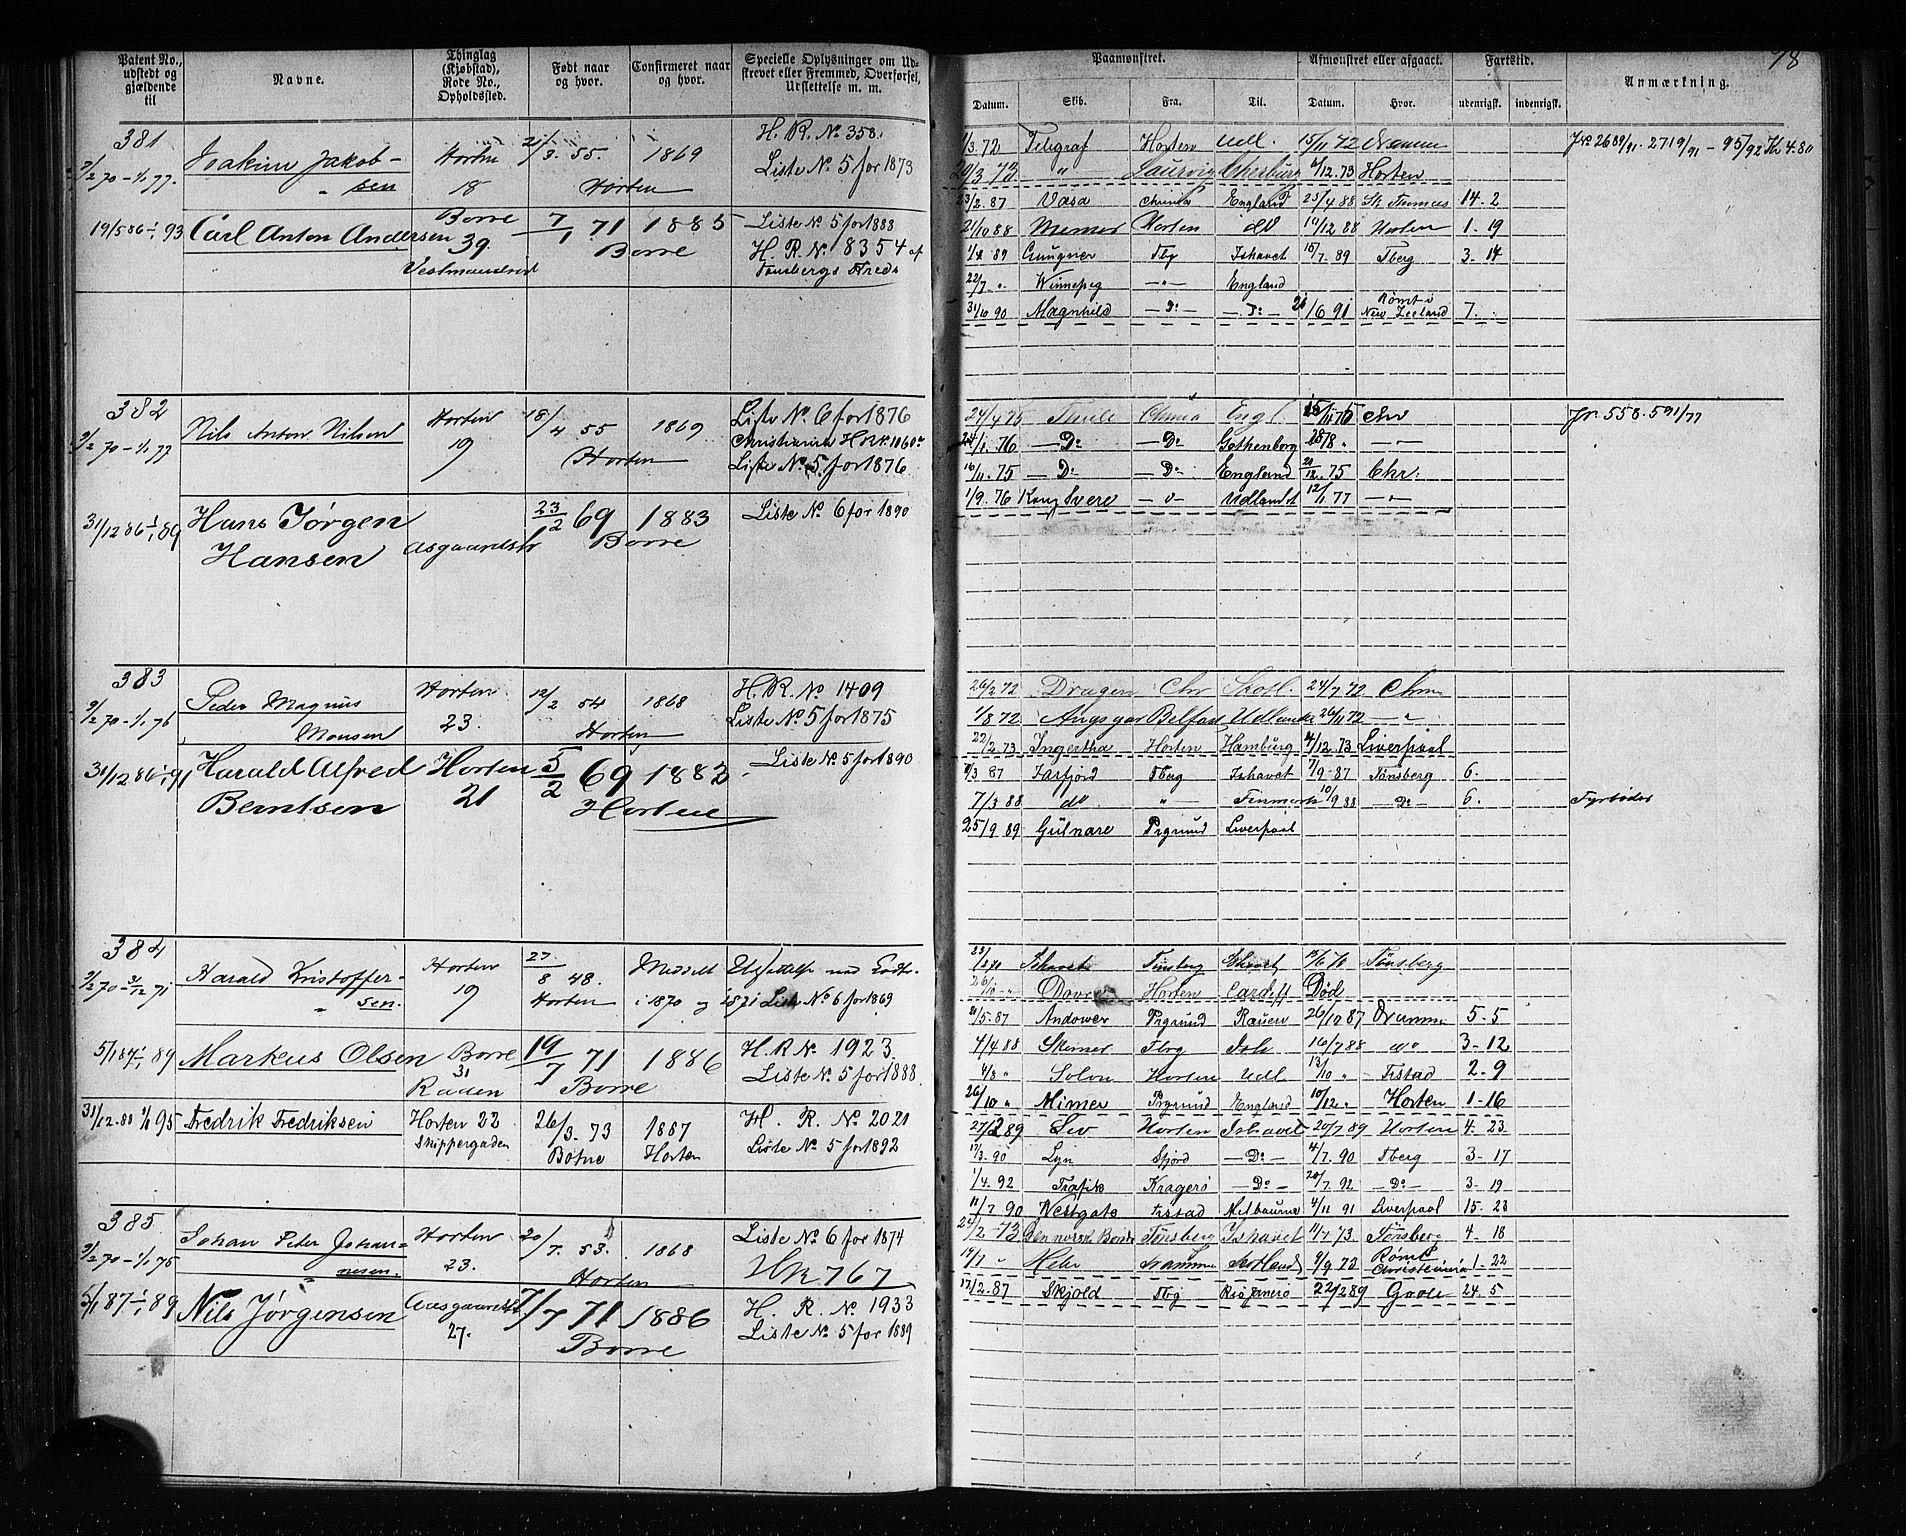 78
Patent No., udstedt og gjældende til
Navne.
Thinglag (Kjøbstad), Rode No., Opholdssted.
Født naar og hvor.
Confirmeret naar og hvor.
Specielle Oplysninger om Udskrevet eller Fremmed, Overførsel, Udslettelse m. m.
Paamønstret.
Afmønstret eller afgaaet.
Fartstid.
Anmærkning.
Datum. Skib. Fra. Til. Datum. Hvor. udenrigsk. indenrigsk.
381
2/2 70 - 1/1 77. Joakim Jakobsen Horten 18 21/3. 55. Horten 1869
H. R. No 358.
Liste No 5 for 1873
19/5 86 1/1 93 Carl Anton Andersen Borre 39 Vestmandrød 7/1 71 1885 Borre
Liste No 5 for 1888
H. R. No 8354 af Tønsbergs Kreds
1/3. 72 Telegraf Horten Udl. 15/11 72 Dramm
20/3 73 " Laurvig Cherburg 6/12. 73 Horten
23/2. 87 Vasa Chrinia England 25/4 88 St Thomas 14. 2
21/10 88 Memer Horten do 10/12 88 Horten 1. 19
1/4 89 Gungner Tbg Ishavet 15/7. 89 Tberg 3. 14
22/7. " Winnepeg — " — England
31/10 90 Magnhild — Do — Do 21/6 91 Rømt i New Zeeland 7.
Jno 2689/91 - 2719/91 - 95/92 Kr 4.80
382
2/2 70 - 1/1 77 Nils Anton Nilsen Horten 19 18/4 55 Horten 1869
Liste No 6 for 1876
Christiania HR No 1860
Liste No 5 for 1876
31/12 86 1/1 89 Hans Jørgen Hansen Aasgaardstr 23/2 69 1883 Borre
Liste No 6 for 1890
24/4 75 Thule Chrnia Engl. 15/11 75 Chr
24/1. 76 — Do — — Do Gothenborg 28/8 "
16/11. 75 — Do — — Do England 20/12. 75 Chr.
1/9. 76 Kong Svere Udlandet 12/1 77
Jr. 558. 591/77
383
2/2 70 - 1/1 76 Peder Magnus Monsen Horten 23. 12/2 54 Horten 1868
H. R. No 1409
Liste No 5 for 1875
31/12 86 1/1 91 Harald Alfred Berntsen Horten 21 5/2 69 1882 Horten
Liste No 5 for 1890
26/2 72 Dragen Chr Skotl. 24/7 72 Chra
1/8 72 Angsgar Belfast Udlandet 26/11 72 — " —
22/2. 73 Ingertha Horten Hamburg 4/12. 73 Liverpool
1/3 87 Jarfjord Tberg Ishavet 1/9. 87 Tønsberg 6.
7/3 88 do " Finmark 10/9 88 — Do — 6. Fyrbøder
25/9 89 Gülnare Prgrund Liverpool
384
2/2 70 - 31/12 71 Harald Kristoffersen Horten 19 27/8 48. Horten Meddelt i 1870 og 1871
Liste No 6 for 1869
5/1 87 1/1 89 Markus Olsen Borre 31 Raaen 19/7 71 1886 Borre
H. R No 1923
Liste No 5 for 1888
31/12. 88 1/1 95 Fredrik Fredriksen Horten 22 Skippergaden 26/3. 73 Botne 1887 Horten
H. R. No 2021
Liste No 5 for 1892
Ishavet Tønsberg Ishavet Tønsberg
Dovre Horten Cardiff Død
21/5. 87 Andower Prgrund Rouen 26/10 87 Dramm 5. 5
4/4 88 Skimer Tbrg Ish 16/7 88 3. 12
4/8 " Solon Horten Udl 13/10 " Tistad 2. 9
26/10 " Mimer Prgrund England 10/12 " Horten 1. 16
27/2 89 Liv Horten Ishavet 20/7 89 Horten 4. 23
17/3. 90 Lyn Sfjord — Do — 4/7. 90 Tberg 3. 17
1/4. 92 Trafik Kragerø — Do — 20/7. 92 — Do — 3. 19
11/7 90 Westgate Fistad Melbourne 4/11 91 Liverpool 15. 23
385
2/2 70 - 1/1 75 Johan Peter Johannesen Horten 23. 20/7. 53. Horten 1868
Liste No 6 for 1874
HR 767
5/1 87 1/1 89 Nils Jørgensen Aasgaardst 27. 7/7 71 1886 Borre
H. R. No 1933
Liste No 5 for 1889
24/2 73 Den norske Bonde Tønsberg Ishavet 11/7 73 Tønsberg 4. 18
19/7 " Hebe Dramm Skotland 9/9 73 Rømt Christiania 1. 22
17/2. 87 Skjold Tbg Rio Janero 22/2 89 24. 5